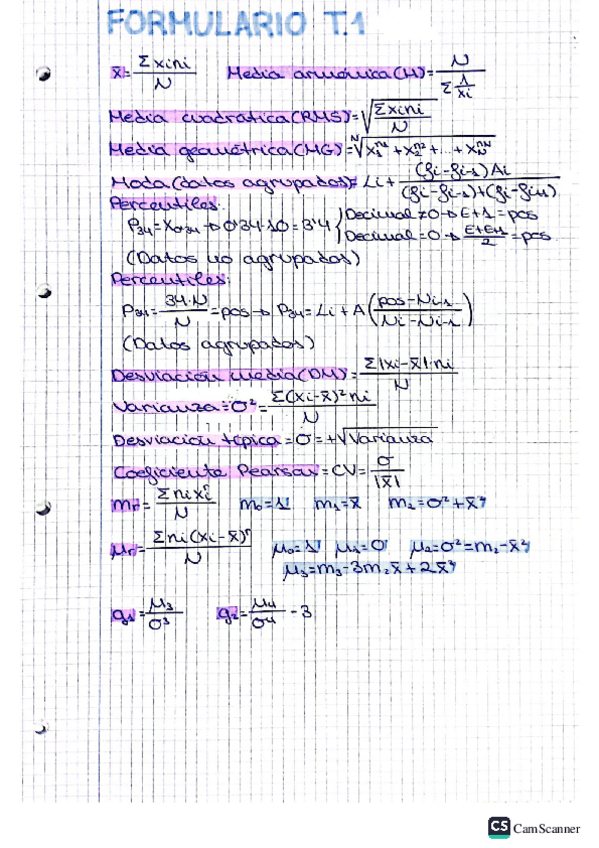 FORMULARIO T.1
x̄ = Σxini / N   Media armónica (H) = N / Σ 1/xi
Media cuadrática (RMS) = √(Σxini / N)
Media geométrica (MG) = ᴺ√(x₁ⁿ¹ + x₂ⁿ² + ... + x_Nⁿᴺ)
Moda (datos agrupados) = Li + (fi - fi-1) Ai / (fi - fi-1) + (fi - fi+1)
Percentiles:
P34 = X0'34 → 0'34·10 = 3'4 { Decimal ≠ 0 → E+1 = pos
Decimal = 0 → E+E+1 / 2 = pos
(Datos no agrupados)
Percentiles:
P34 = 34·N / N = pos → P34 = Li + A (pos - Ni-1 / Ni - Ni-1)
(Datos agrupados)
Desviación media (DM) = Σ|xi - x̄|·ni / N
Varianza = σ² = Σ(xi - x̄)² ni / N
Desviación típica = σ = +√Varianza
Coeficiente Pearson = CV = σ / |x̄|
mr = Σ ni xiʳ / N   m₀ = 1   m₁ = x̄   m₂ = σ² + x̄²
μr = Σ ni (xi - x̄)ʳ / N   μ₀ = 1   μ₁ = 0   μ₂ = σ² = m₂ - x̄²
μ₃ = m₃ - 3m₂x̄ + 2x̄³
g₁ = μ₃ / σ³   g₂ = μ₄ / σ⁴ - 3
CS CamScanner